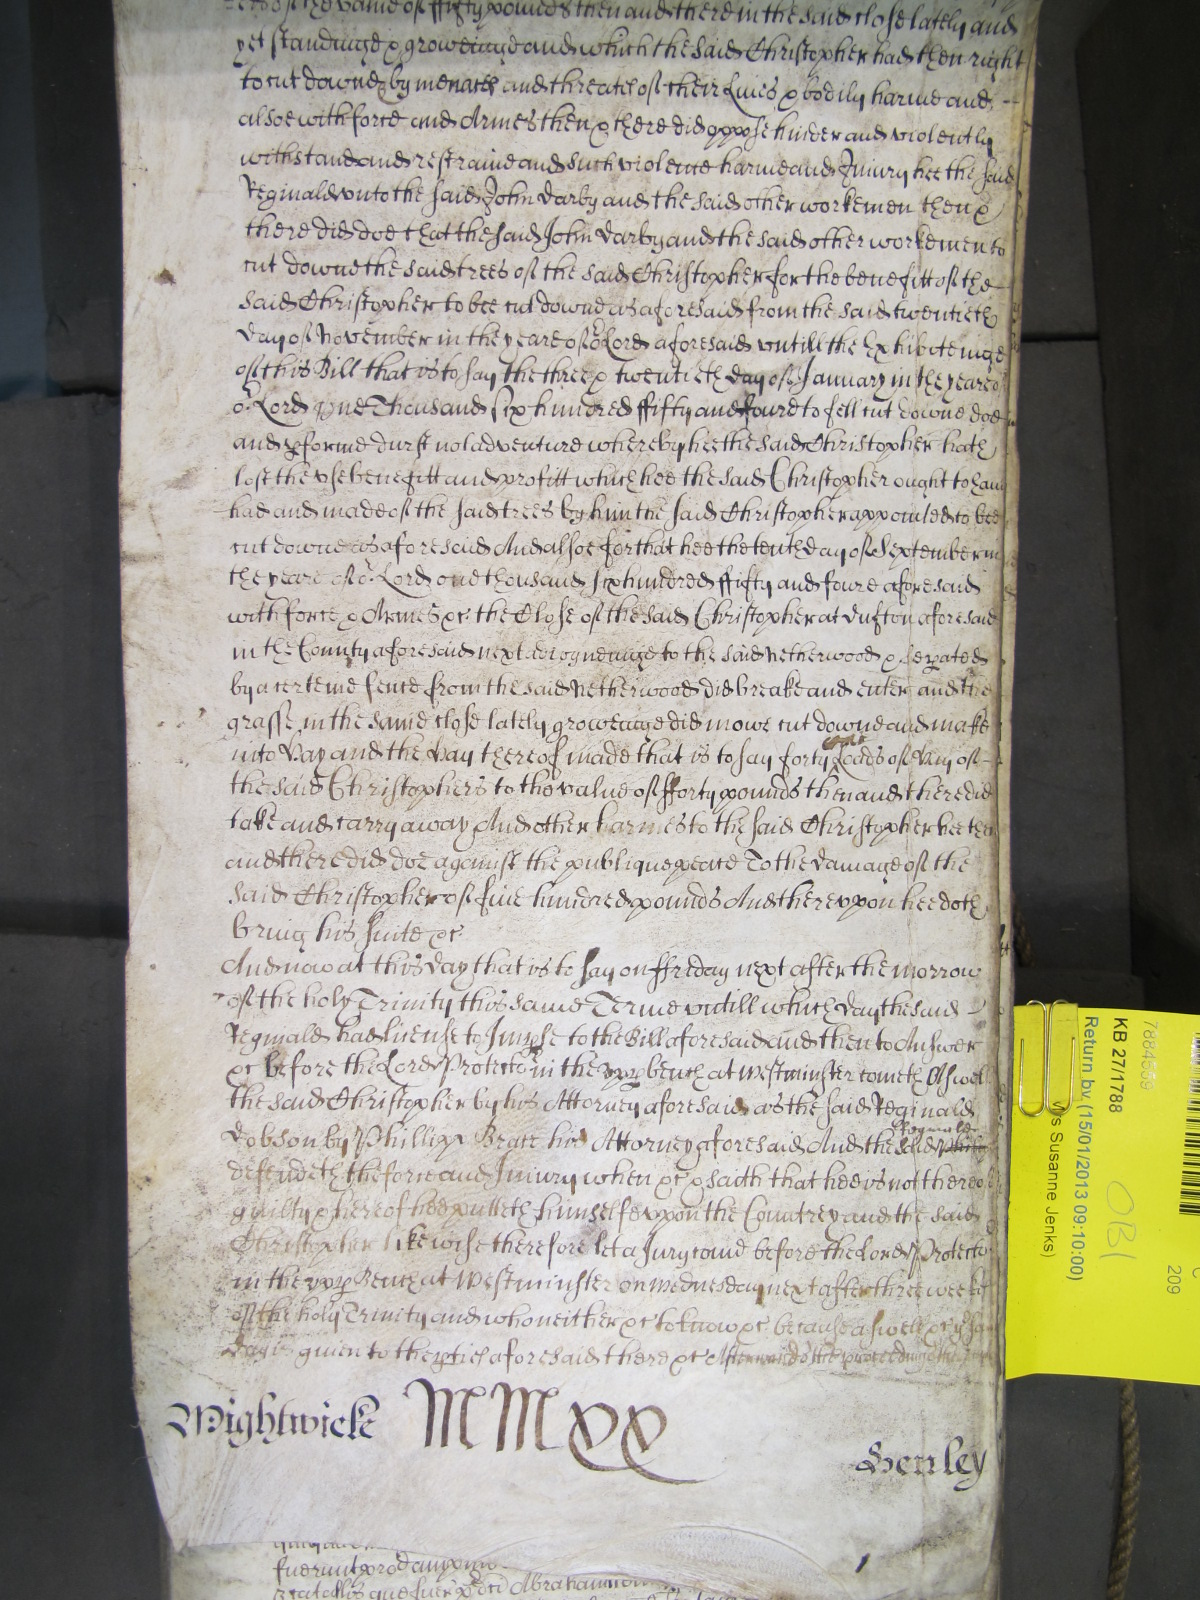 of the value of ffifty pounds then and there in the said close lately and
yet standinge & groweinge and which the said Christopher had then right
to cut downe by menaces and threats of their Lives & bodily harme and
alsoe with force and Armes then & there did oppose hinder and violently
withstand and restraine and such violence harme and Iniury hee the said
Reginald unto the said John Darby and the said other workemen then &
there did doe that the said John Darby and the said other workemen to
cut downe the said trees of the said Christopher for the benefitt of the
said Christopher to bee cut downe as aforesaid from the said twentieth
day of November in the yeare of or Lord aforesaid untill the Exhibiteinge
of this Bill that is to say the three & twentieth day of January in the yeare of
or Lord One Thousand six hundred ffifty and foure to fell cut downe doe
and pforme durst not adventure whereby hee the said Christopher hath
lost the use benefitt and profitt which hee the said Christopher ought to have
had and made of the said trees by him the said Christopher appointed to bee
cut downe as aforesaid And alsoe for that hee the tenth day of September in
the yeare of or Lord one thousand six hundred ffifty and foure aforesaid
with force & Armes &c the Close of the said Christopher at Dufton aforesaid
in the County aforesaid next adioyneinge to the said Netherwood & sepated
by a certeine fence from the said Netherwood did breake and enter and the
grasse in the same close lately groweinge did mowe cut downe and make
into Hay and the Hay thereof made that is to say forty Loads of Hay of
the said Christophers to the value of fforty pounds then and there did
take and carry away And other harmes to the said Christopher hee then
and there did doe against the publique peace To the damage of the
said Christopher of five hundred pounds And thereupon hee doth
bring his suite &c
And now at this day that is to say on ffriday next after the morrow
of the holy Trinity this same Terme untill which day the said
Reginald had license to Imple to the Bill aforesaid and then to Answer
&c before the Lord Protector in the upp bench at Westminster cometh Aswell
the said Christopher by his Attorney aforesaid as the said Reginald
Dobson by Phillipp Bratt his Attorney aforesaid And the said Reginald
defendeth the force and Iniury when &c & saith that hee is not thereof
guilty & hereof hee putteth himselfe upon the Countrey and the said
Christopher likewise therefore let a Jury come before the Lord Protector
in the upp Bench at Westminster on Wednesday next after three weeks
of the holy Trinity and who neither &c to know &c because aswell &c the same
day is given to the pties aforesaid there &c Afterwards the
Wightwicke MMxx
Henley
fuerunt
Abraham
7884559
KB 27/1788
Return by (15/01/2013 09:10:00)
Susanne Jenks)
OBI
209